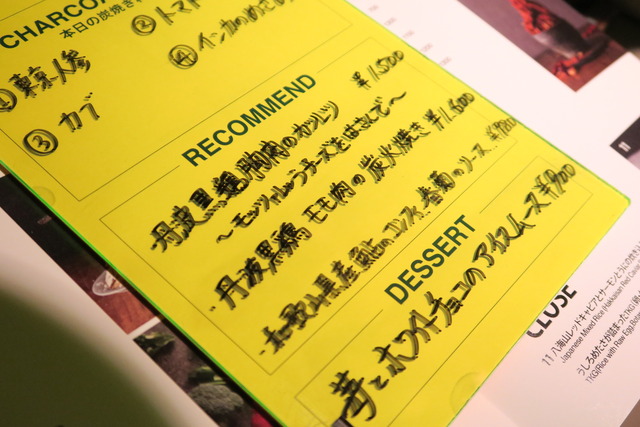 CHARCOA
本日の炭焼きや
① 東京人参
② トマト
③ カブ
④ インカのめざ
RECOMMEND
丹波黒鶏胸肉のカツレツ ¥1,500
～モッツァレラチーズをはさんで～
丹波黒鶏 モモ肉の炭火焼き ¥1,500
和歌山県産 のコンフィ 春菊のソース
DESSERT
苺とホワイトチョコのアイスムース ¥900
11
CLOSE
11 八海山レッドキャビアとサーモンとうにの炊き
Japanese Mixed Rice (Hakkaisan Red Caviar
うしろめたさが詰まったTKG
TKG(Rice with Raw Egg,Botar